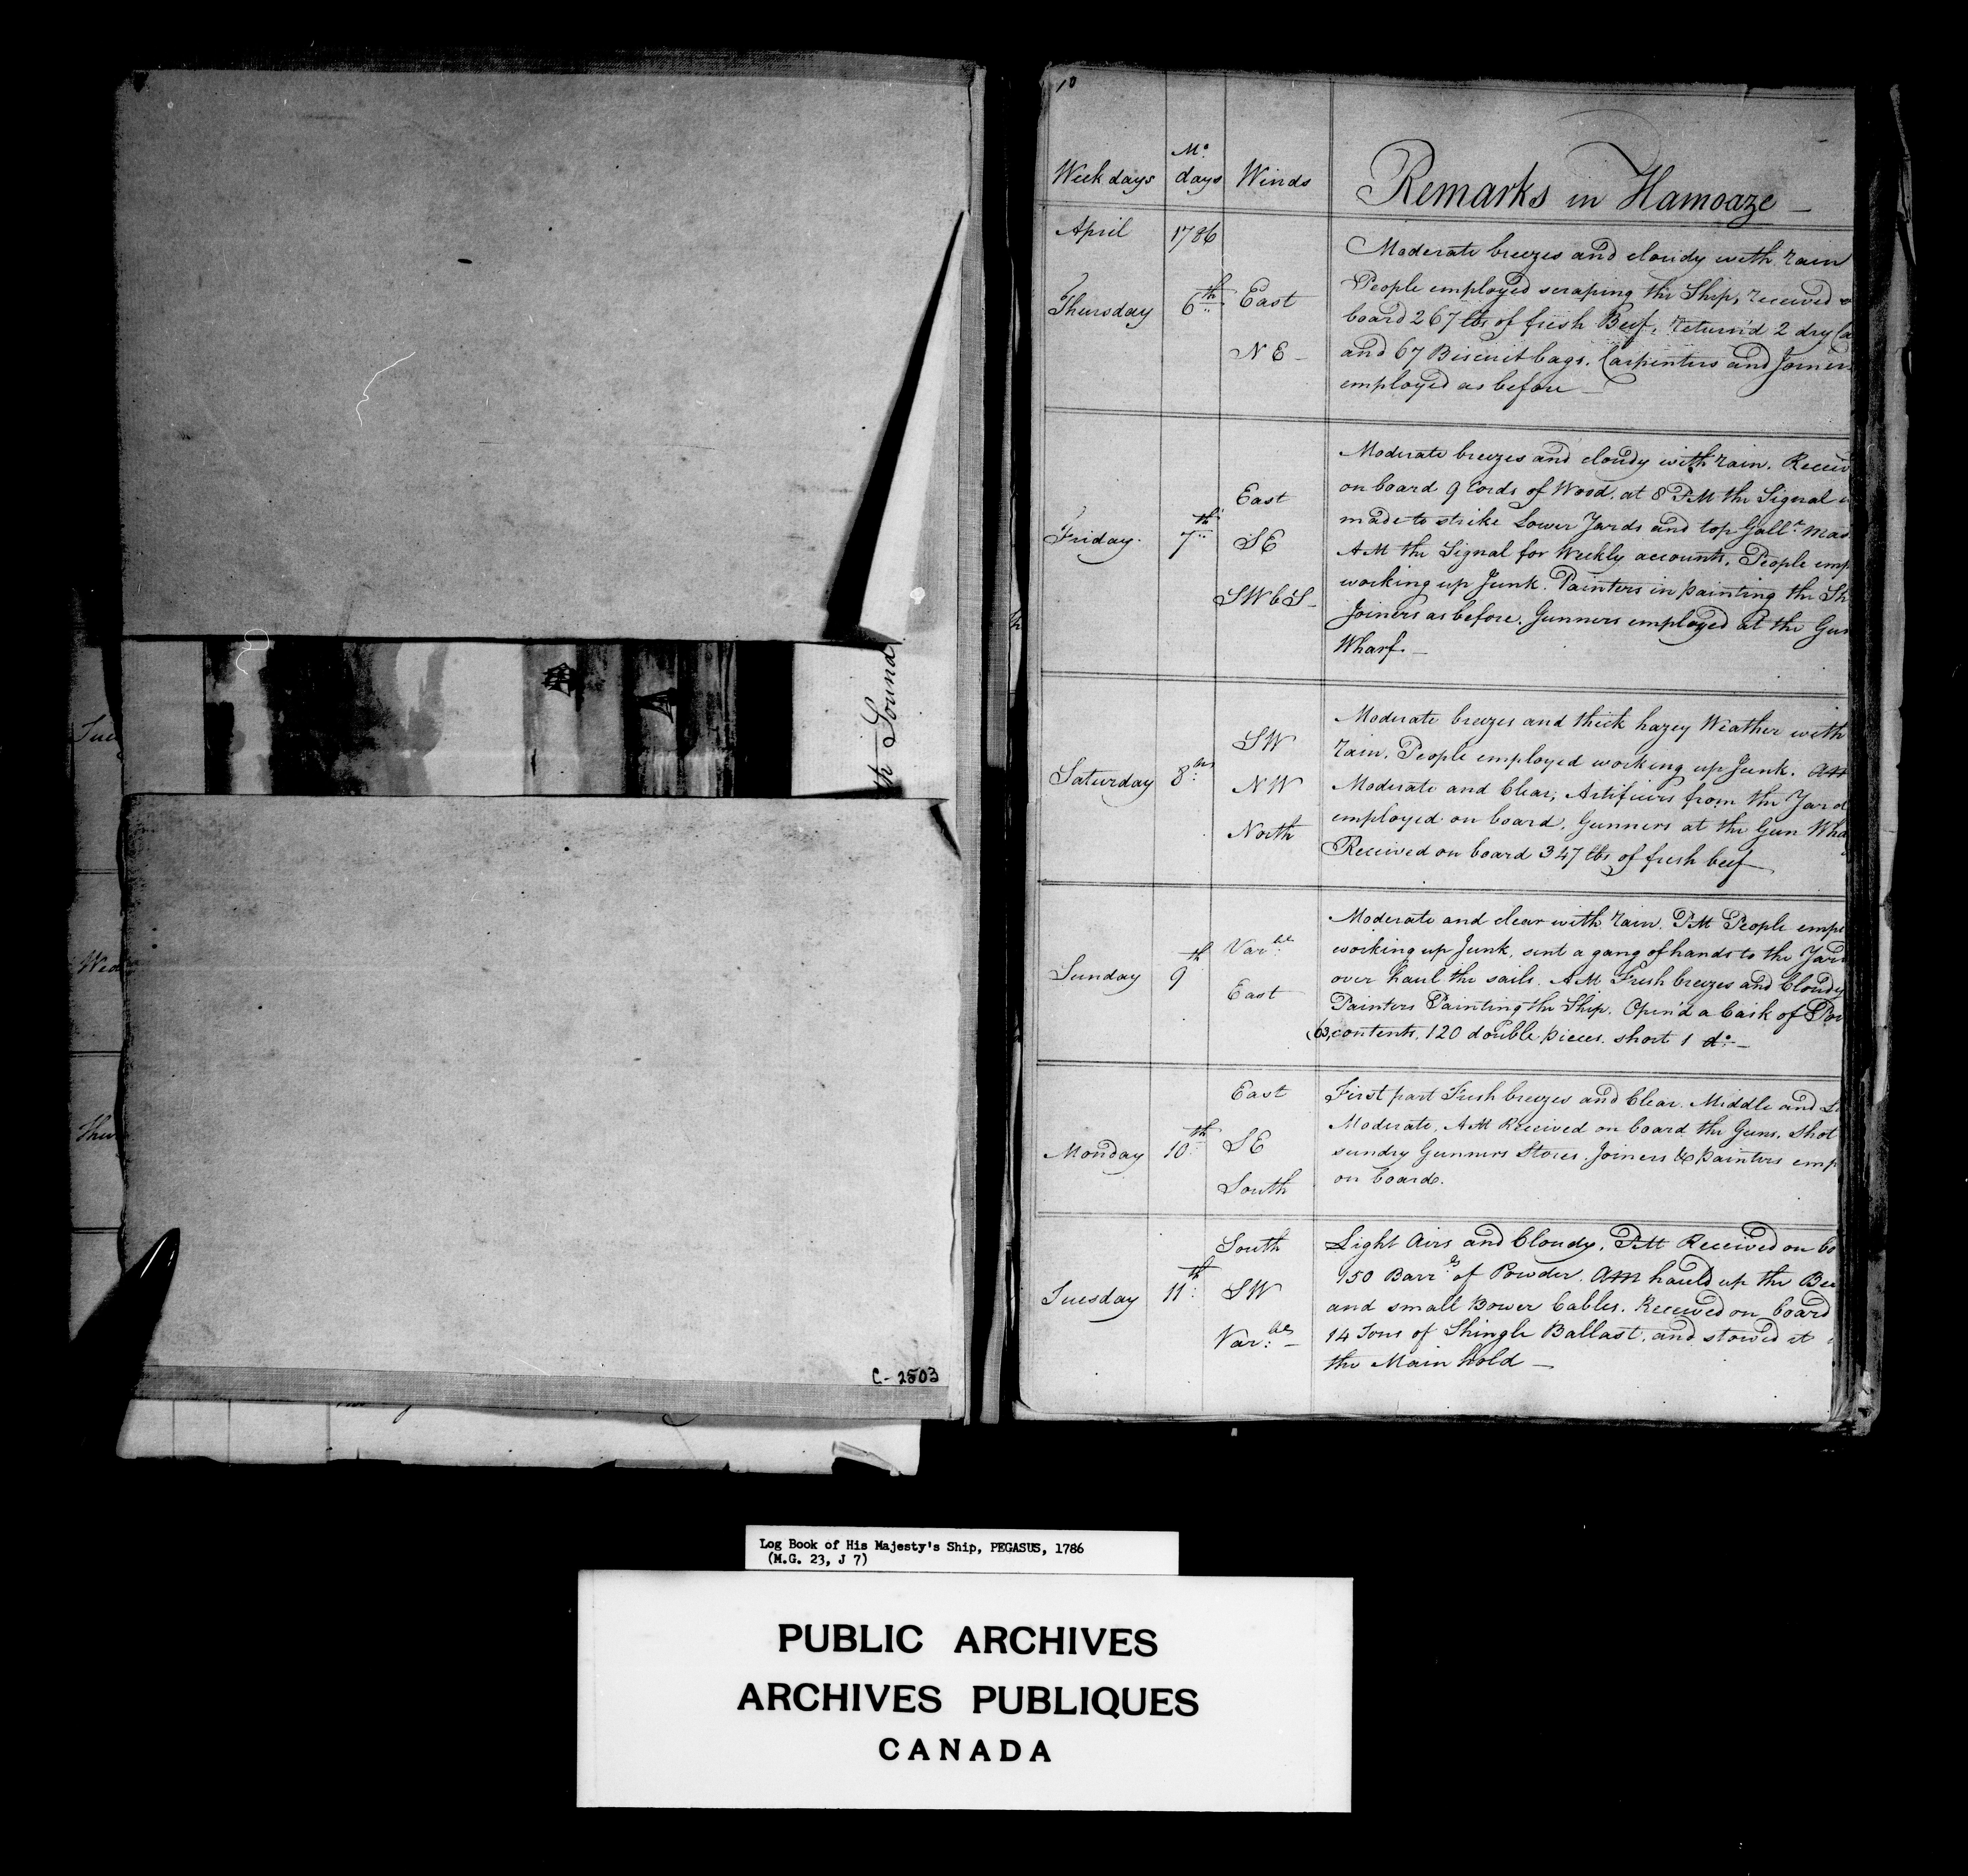 Tue
Wed
Thu
th Sound
C-2503
10
Week days Mo. days Winds Remarks in Hamoaze
April 1786
Moderate breezes and cloudy with rain
People employed scraping the Ship, received
Thursday 6th East
board 267 lbs of fresh Beef, return'd 2 dry Ca
N E
and 67 Biscuit bags. Carpenters and Joiners
employed as before
Moderate breezes and cloudy with rain. Receiv
on board 9 Cords of Wood. at 8 PM the Signal
East
made to strike Lower Yards and top Gallt. Mas
Friday. 7th SE
AM the Signal for Weekly accounts, People emp
working up Junk. Painters in painting the Sh
SWbS
Joiners as before. Gunners employed at the Gun
Wharf.
Moderate breezes and thick hazey Weather with
SW
rain, People employed working up Junk. AM
Saturday 8th NW
Moderate and Clear; Artificers from the Yard
employed on board, Gunners at the Gun Wha
North
Received on board 347 lbs of fresh beef
Moderate and clear with rain. PM People empl
Varble
working up Junk, sent a gang of hands to the Yard
Sunday 9th
over haul the sails. AM Fresh breezes and Cloudy
East
Painters Painting the Ship. Open'd a Cask of Por
63, contents, 120 double pieces. short 1 do.
East
First part Fresh breezes and Clear. Middle and L
Moderate, AM Received on board the Guns, Shot
Monday 10th SE
sundry Gunners Stores. Joiners & painters emp
South
on board.
South
Light Airs and Cloudy, PM Received on bo
150 Barrls of Powder. AM hauld up the Be
Tuesday 11th SW
and small Bower Cables. Received on board
Varble
14 Tons of Shingle Ballast, and stowed it
the Main hold
Log Book of His Majesty's Ship, PEGASUS, 1786
(M.G. 23, J 7)
PUBLIC ARCHIVES
ARCHIVES PUBLIQUES
CANADA